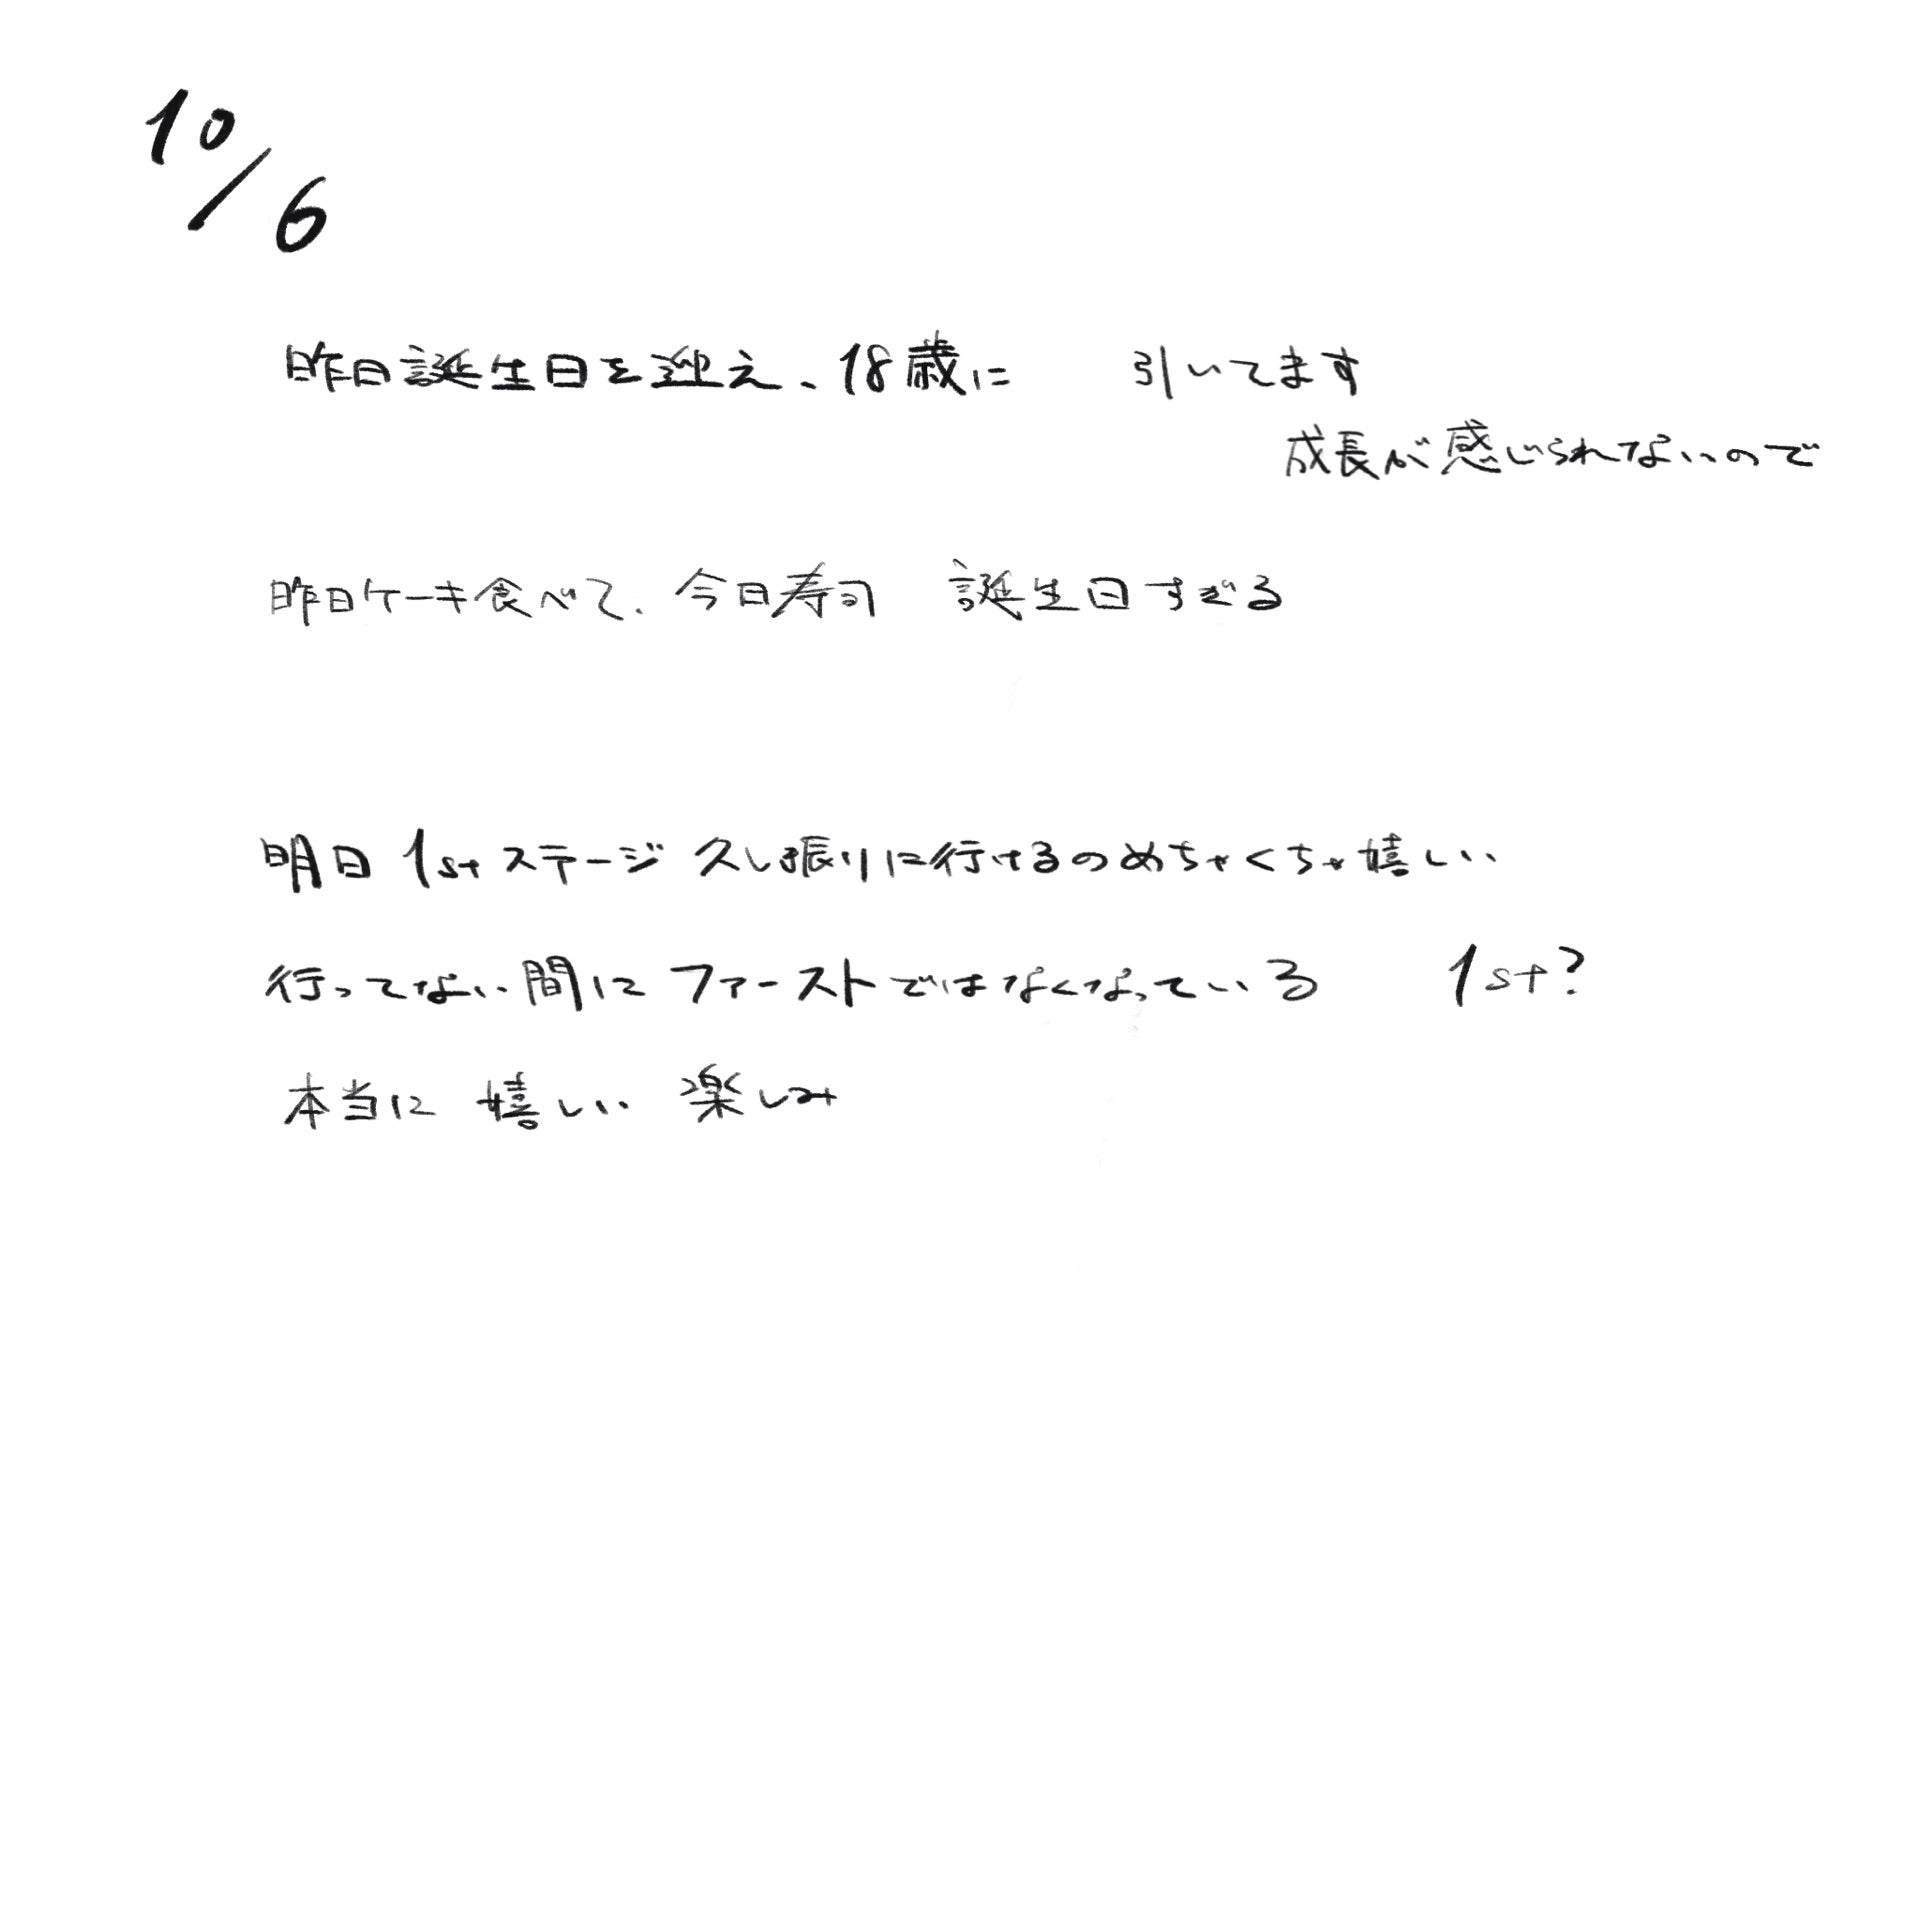 10/6
昨日誕生日を迎え、18歳に 引いてます
成長が感じられないので
昨日ケーキ食べて、今日寿司 誕生日すぎる
明日 1stステージ 久し振りに行けるのめちゃくちゃ嬉しい
行ってない間にファーストではなくなっている 1st?
本当に 嬉しい 楽しみ